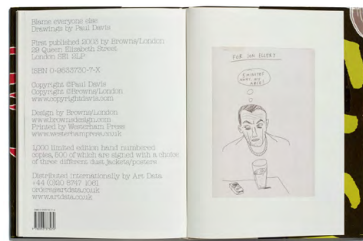 Blame everyone else
Drawings by Paul Davis
First published 2003 by Browns/London
29 Queen Elizabeth Street
London SE1 2LP
ISBN 0-9533730-7-X
Copyright ©Paul Davis
Copyright ©Browns/London
www.copyrightdavis.com
Design by Browns/London
www.brownsdesign.com
Printed by Westerham Press
www.westerhampress.com
1,000 limited edition hand numbered
copies, 500 of which are signed with a choice
of three different dust jackets/posters
Distributed internationally by Art Data
orders@artdata.co.uk
www.artdata.co.uk